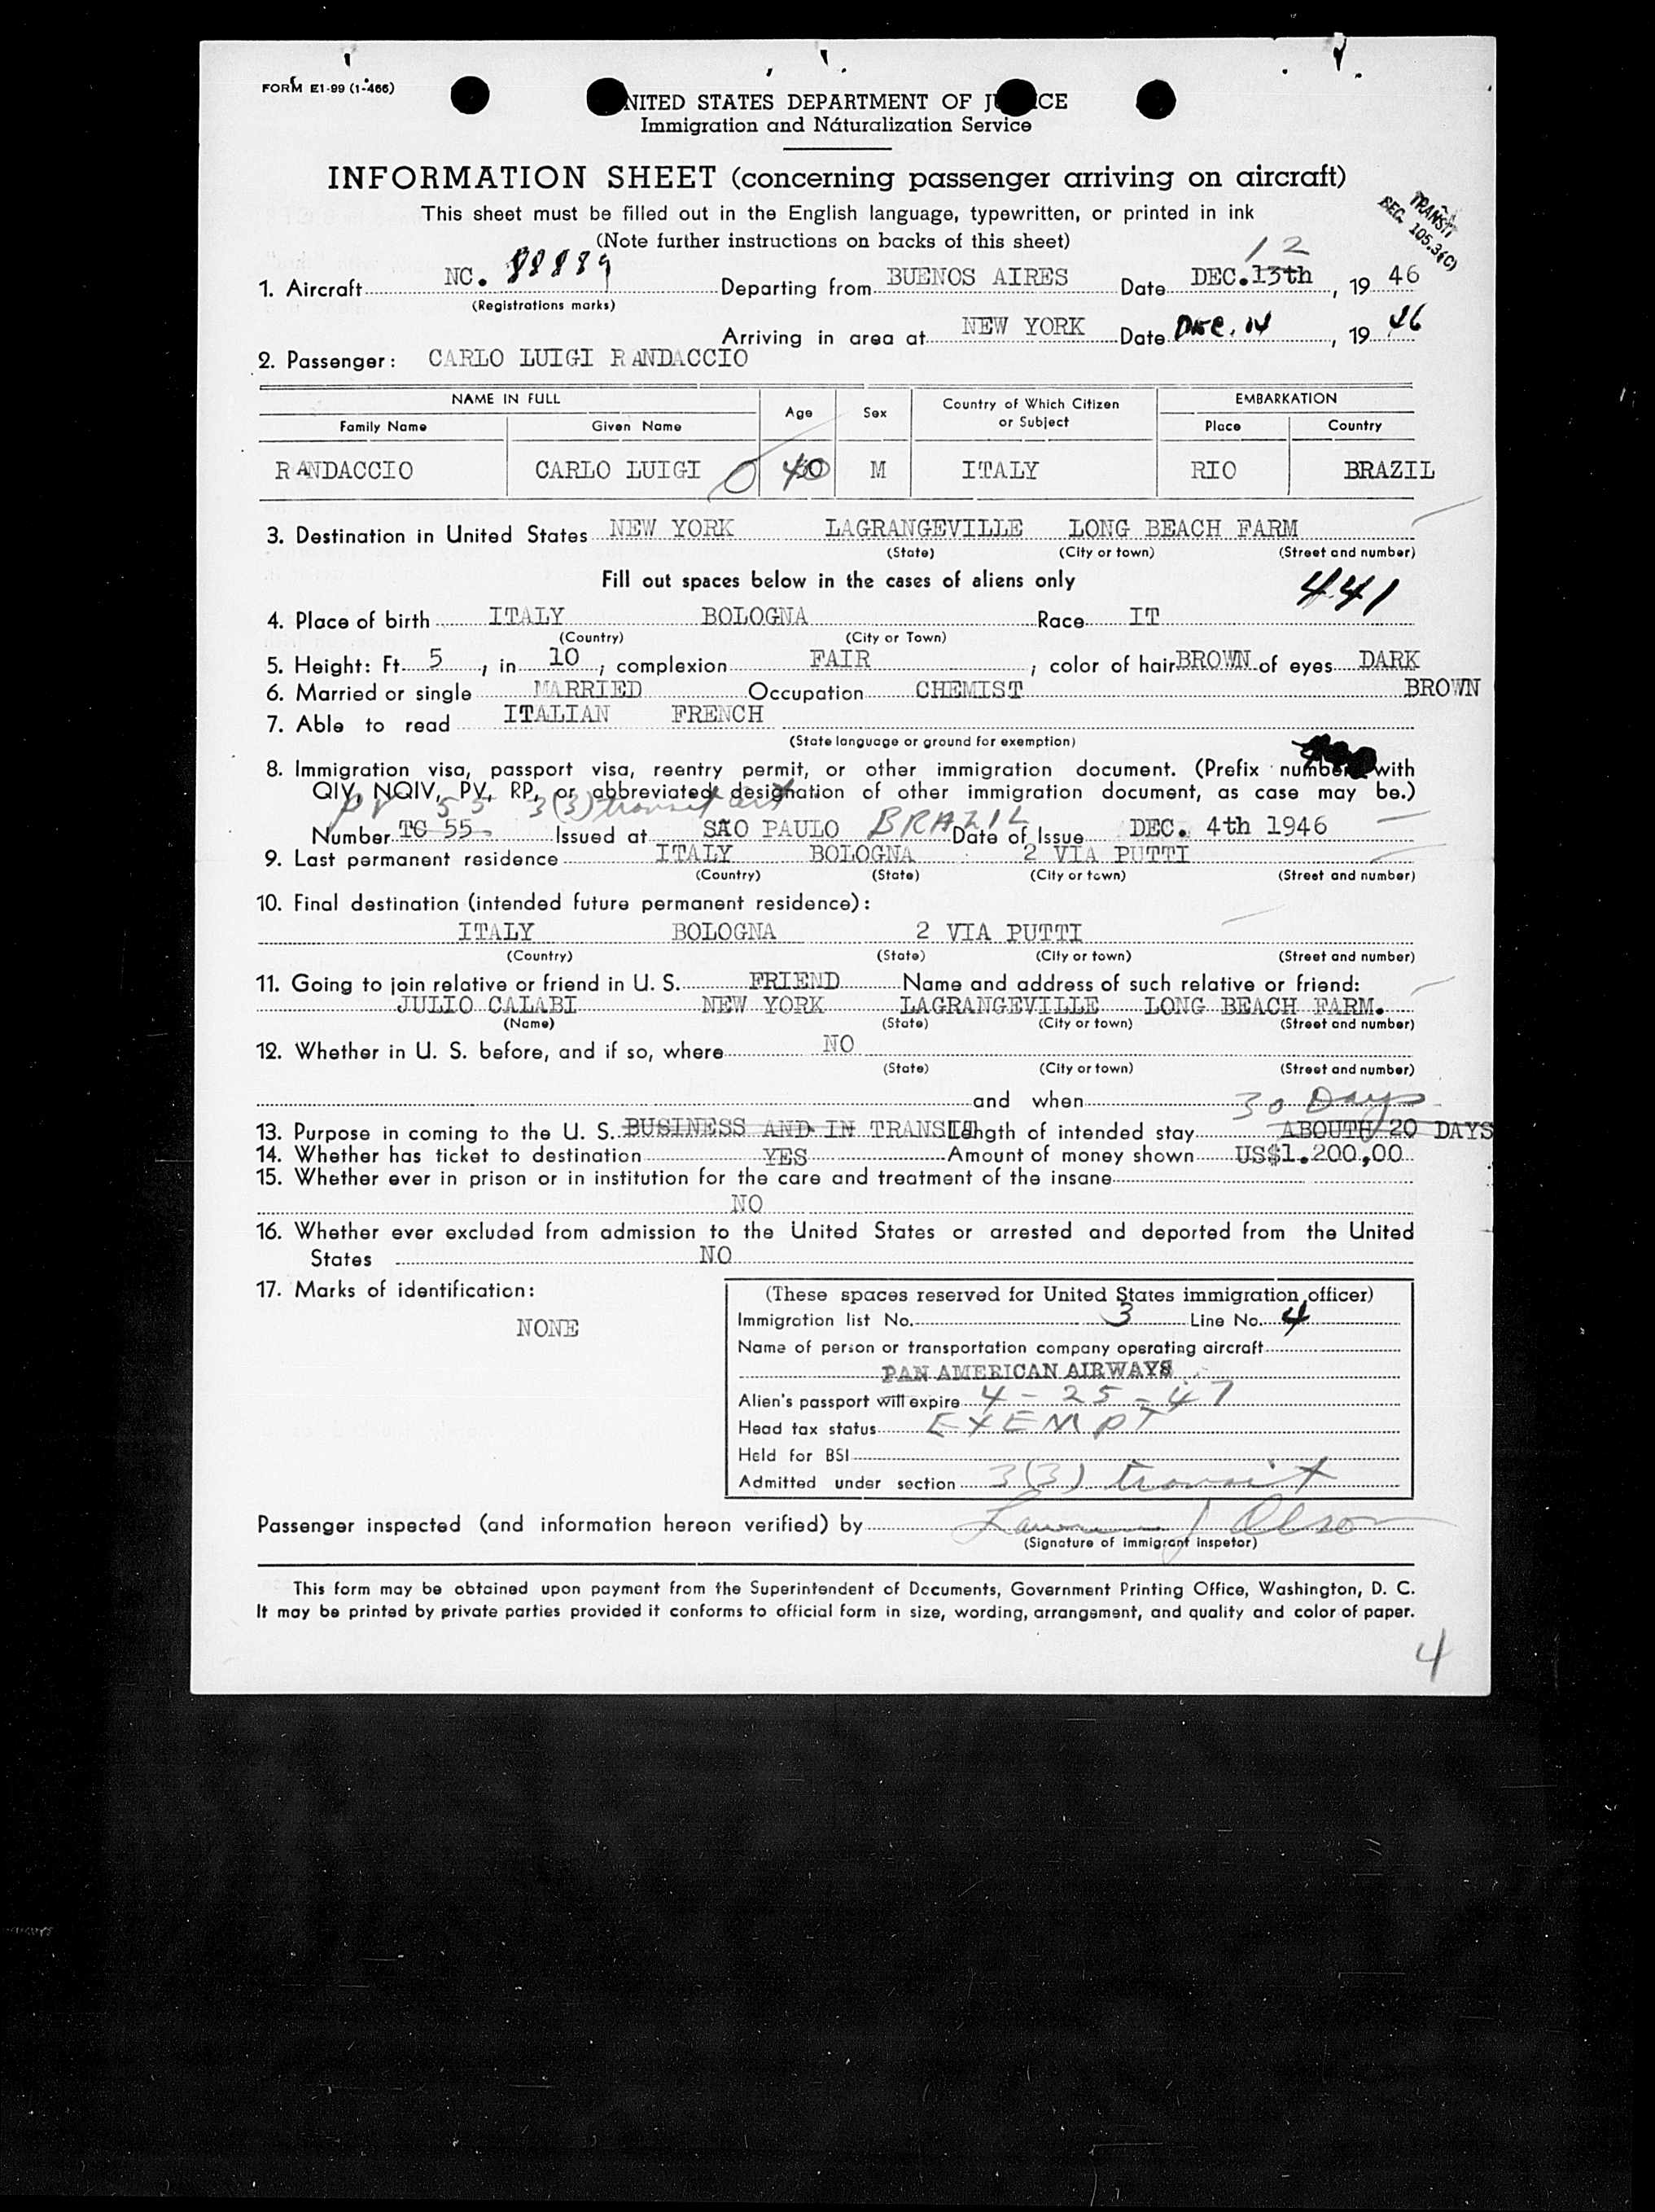 FORM E1-99 (1-466)
NITED STATES DEPARTMENT OF J CE
Immigration and Naturalization Service
INFORMATION SHEET (concerning passenger arriving on aircraft)
This sheet must be filled out in the English language, typewritten, or printed in ink
(Note further instructions on backs of this sheet)
TRANSIT
REG. 105.3(C)
12
1. Aircraft NC. 88889 Departing from BUENOS AIRES Date DEC.13th, 19 46
(Registrations marks)
Arriving in area at NEW YORK Date DEC. 14, 19 46
2. Passenger: CARLO LUIGI RANDACCIO
NAME IN FULL Age Sex Country of Which Citizen or Subject EMBARKATION
Family Name Given Name Place Country
RANDACCIO CARLO LUIGI 40 M ITALY RIO BRAZIL
3. Destination in United States NEW YORK LAGRANGEVILLE LONG BEACH FARM
(State) (City or town) (Street and number)
Fill out spaces below in the cases of aliens only
441
4. Place of birth ITALY BOLOGNA Race IT
(Country) (City or Town)
5. Height: Ft. 5, in 10; complexion FAIR; color of hair BROWN of eyes DARK
BROWN
6. Married or single MARRIED Occupation CHEMIST
7. Able to read ITALIAN FRENCH
(State language or ground for exemption)
8. Immigration visa, passport visa, reentry permit, or other immigration document. (Prefix number with
QIV, NQIV, PV, RP, or abbreviated designation of other immigration document, as case may be.)
PV 55 3(3) transit
Number TC 55 Issued at SÃO PAULO BRAZIL Date of Issue DEC. 4th 1946
9. Last permanent residence ITALY BOLOGNA 2 VIA PUTTI
(Country) (State) (City or town) (Street and number)
10. Final destination (intended future permanent residence):
ITALY BOLOGNA 2 VIA PUTTI
(Country) (State) (City or town) (Street and number)
11. Going to join relative or friend in U. S. FRIEND Name and address of such relative or friend:
JULIO CALABI NEW YORK LAGRANGEVILLE LONG BEACH FARM.
(Name) (State) (City or town) (Street and number)
12. Whether in U. S. before, and if so, where NO
(State) (City or town) (Street and number)
and when
30 Days
13. Purpose in coming to the U. S. BUSINESS AND IN TRANSIT Length of intended stay ABOUTH 20 DAYS
14. Whether has ticket to destination YES Amount of money shown US$1.200,00
15. Whether ever in prison or in institution for the care and treatment of the insane
NO
16. Whether ever excluded from admission to the United States or arrested and deported from the United
States NO
17. Marks of identification:
NONE
(These spaces reserved for United States immigration officer)
Immigration list No. 3 Line No. 4
Name of person or transportation company operating aircraft
PAN AMERICAN AIRWAYS
Alien's passport will expire 4-25-47
Head tax status EXEMPT
Held for BSI
Admitted under section 3(3) transit
Passenger inspected (and information hereon verified) by Lawrence J Olson
(Signature of immigrant inspetor)
This form may be obtained upon payment from the Superintendent of Documents, Government Printing Office, Washington, D. C.
It may be printed by private parties provided it conforms to official form in size, wording, arrangement, and quality and color of paper.
4